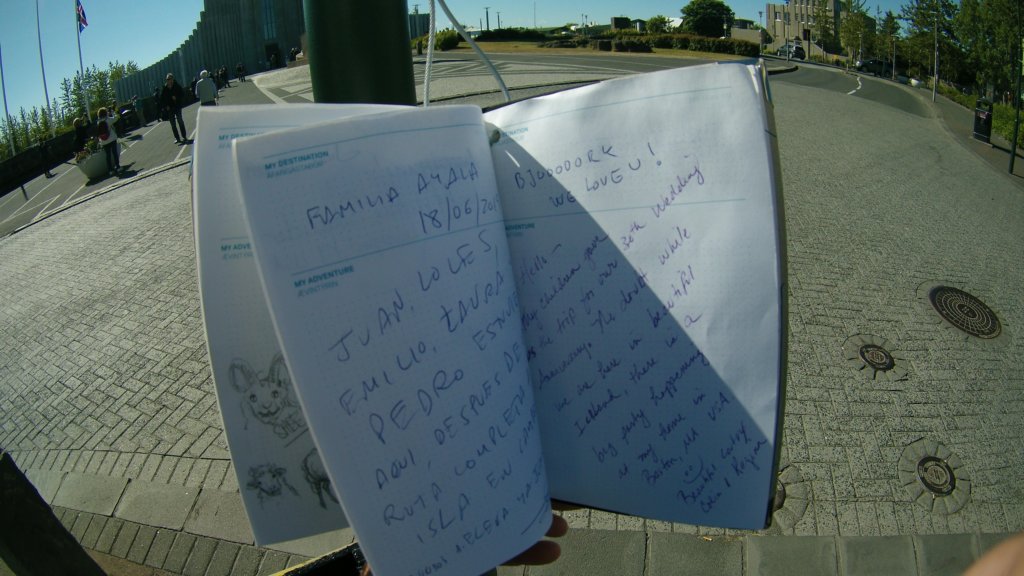 MY DESTINATION
ÁFANGASTAÐUR
FAMILIA AYALA
18/06/201
MY ADVENTURE
ÆVINTÝRIN
JUAN, LOLES,
EMILIO, LAURA
PEDRO ESTUV
AQUI, DESPUES DE
RUTA COMPLETA
ISLA EN
MY DE
MY ADVE
ÆVINTÝ
SHEE
BJOOOORK
WE LOVE U!
ADVENTURE
Hello –
My children gave
us the trip for our 30th Wedding
Anniversary. No doubt while
we are here in beautiful
Iceland, there is a
big party happening
at my home in
Boston, MA USA
Beautiful country